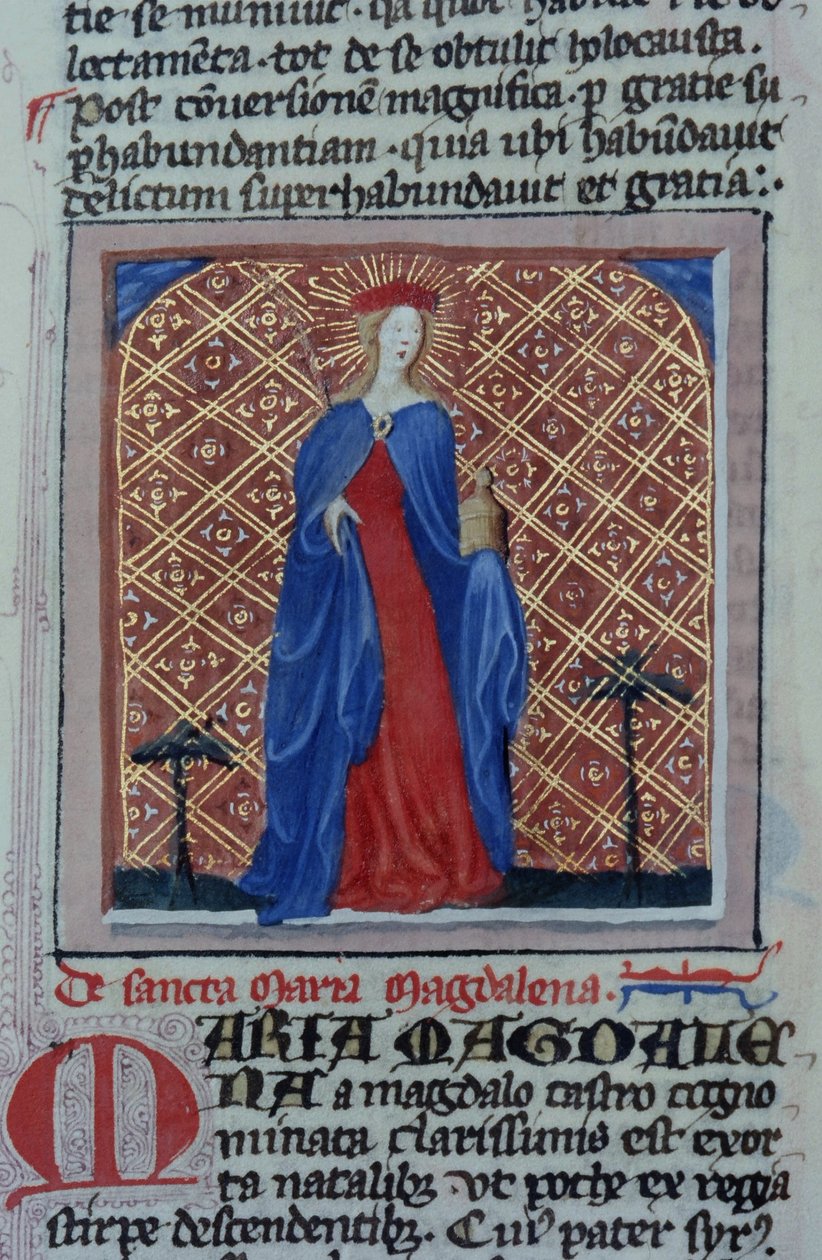 tie se muniuit. qa quot habuit i se ob-
lectamēta. tot de se obtulit holocausta.
¶ Post cōuersionē magnifica. p gratie su-
phabundantiam. quia ubi habūdauit
delictum superhabundauit et gratia:.
De sancta Maria Magdalena.
MARIA MAGDALE-
NA a magdalo castro cogno-
minata clarissimis est exor-
ta natalibꝫ. vt pothe ex regia
stirpe descendentibꝫ. Cuiꝰ pater syrꝰ